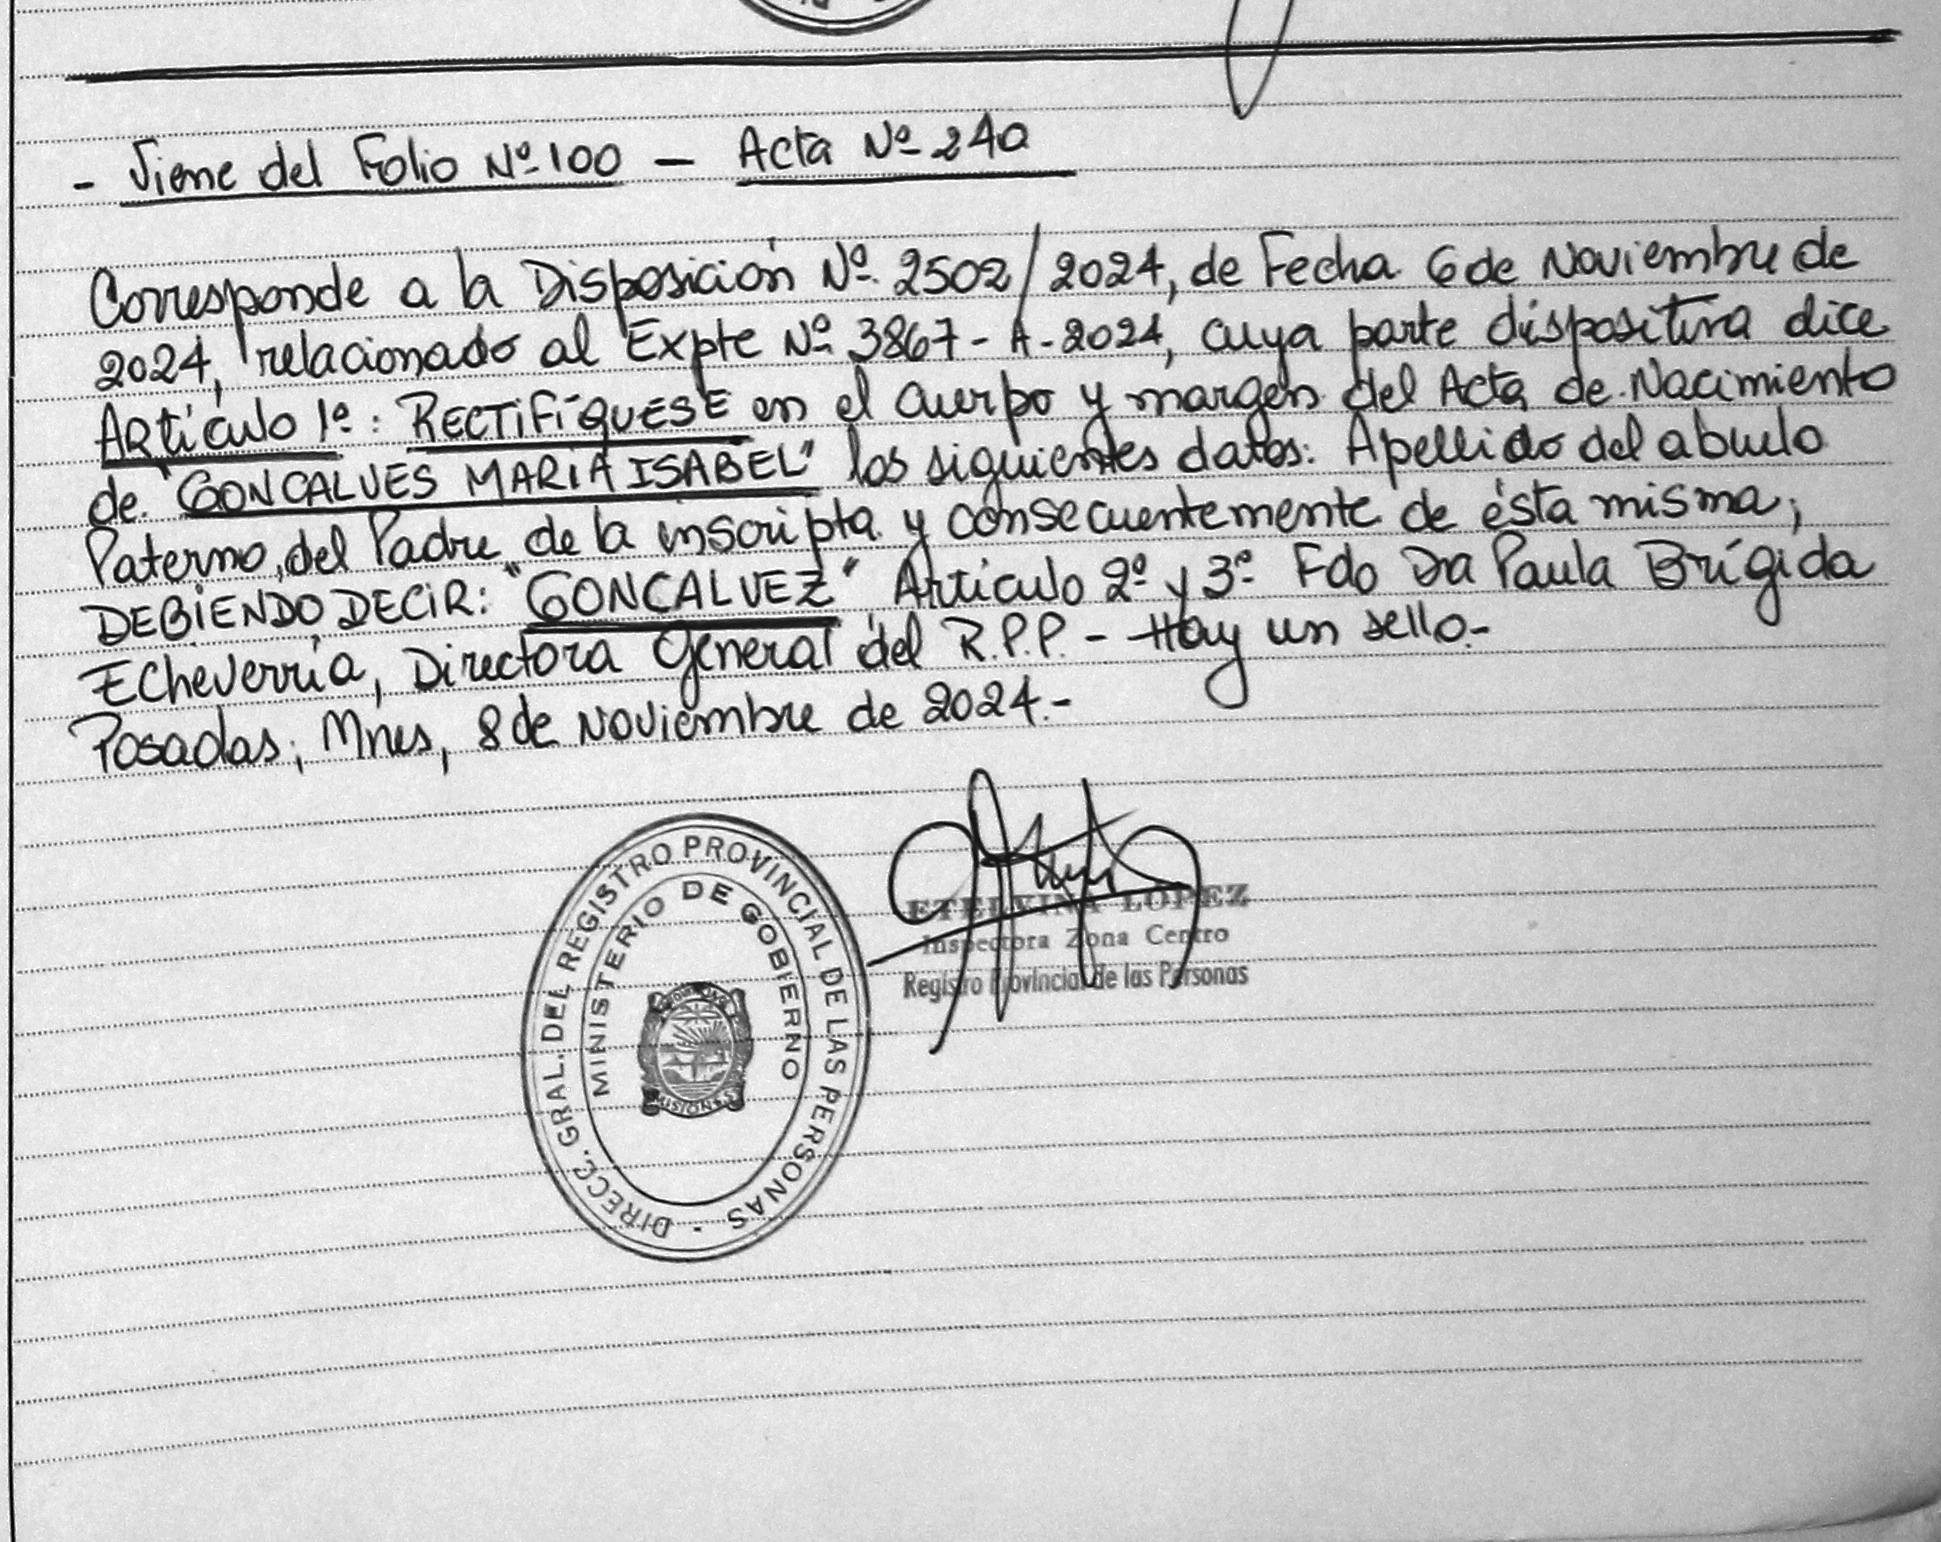 - Viene del Folio Nº 100 - Acta Nº 240
Corresponde a la Disposición Nº 2502/2024, de Fecha 6 de Noviembre de
2024, relacionado al Expte Nº 3867-A-2024, cuya parte dispositiva dice
Artículo 1º: RECTIFÍQUESE en el cuerpo y margen del Acta de Nacimiento
de "GONCALVES MARIA ISABEL" los siguientes datos: Apellido del abuelo
Paterno, del Padre de la inscripta y consecuentemente de ésta misma;
DEBIENDO DECIR: "GONCALVEZ" Artículo 2º y 3º Fdo Dra Paula Brígida
Echeverría, Directora General del R.P.P. - Hay un sello.-
Posadas, Mnes, 8 de Noviembre de 2024.-
DIRECC. GRAL. DEL REGISTRO PROVINCIAL DE LAS PERSONAS
MINISTERIO DE GOBIERNO
MISIONES
ETELVINA LOPEZ
Inspectora Zona Centro
Registro Provincial de las Personas